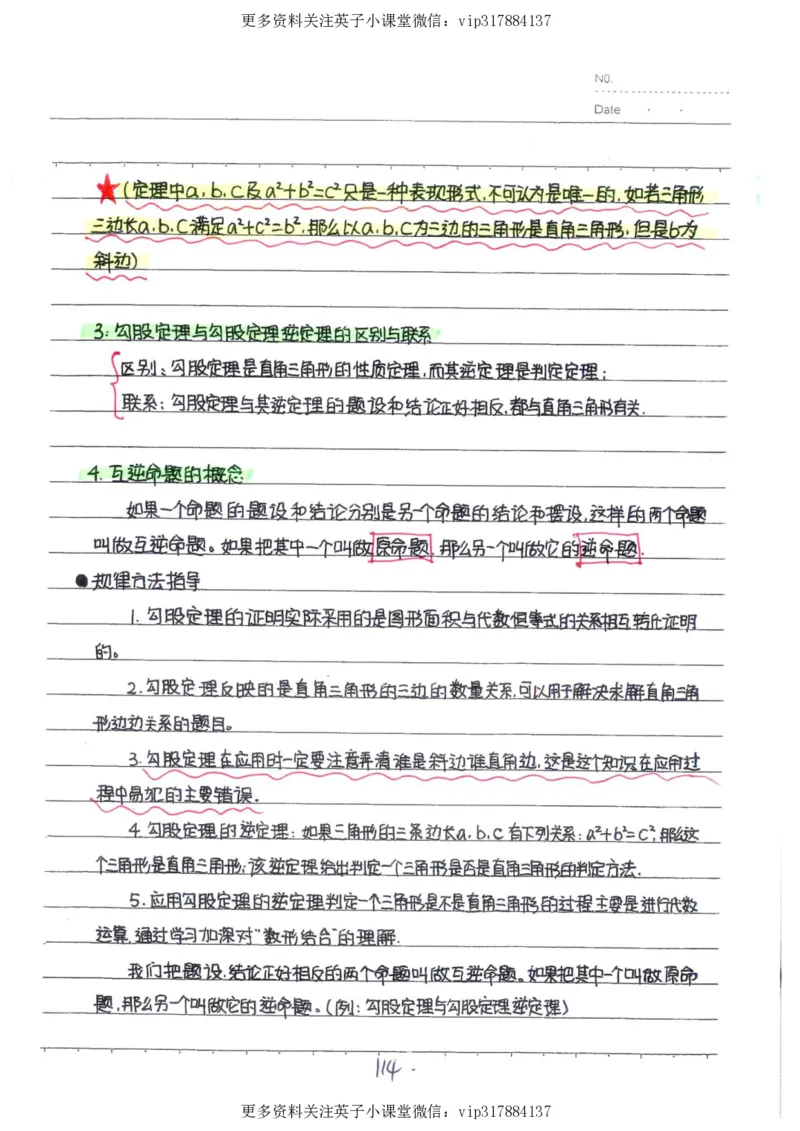 更多资料关注英子小课堂微信：vip317884137
NO.
Date
★(定理中a,b,c及a²+b²=c²只是一种表现形式,不可认为是唯一的,如若三角形
三边长a,b,c满足a²+c²=b²,那么以a,b,c为三边的三角形是直角三角形,但是b为
斜边)
3:勾股定理与勾股定理逆定理的区别与联系
区别:勾股定理是直角三角形的性质定理,而其逆定理是判定定理;
联系:勾股定理与其逆定理的题设和结论正好相反,都与直角三角形有关.
4.互逆命题的概念
如果一个命题的题设和结论分别是另一个命题的结论和摆设,这样的两个命题
叫做互逆命题。如果把其中一个叫做原命题,那么另一个叫做它的逆命题.
●规律方法指导
1.勾股定理的证明实际采用的是图形面积与代数恒等式的关系相互转化证明
的。
2.勾股定理反映的是直角三角形的三边的数量关系,可以用于解决求解直角三角
形边边关系的题目。
3.勾股定理在应用时一定要注意弄清谁是斜边谁直角边,这是这个知识在应用过
程中易犯的主要错误.
4.勾股定理的逆定理:如果三角形的三条边长a,b,c有下列关系:a²+b²=c²,那么这
个三角形是直角三角形;该逆定理给出判定一个三角形是否是直角三角形的判定方法.
5.应用勾股定理的逆定理判定一个三角形是不是直角三角形的过程主要是进行代数
运算,通过学习加深对“数形结合”的理解.
我们把题设、结论正好相反的两个命题叫做互逆命题。如果把其中一个叫做原命
题,那么另一个叫做它的逆命题。(例:勾股定理与勾股定理逆定理)
114.
更多资料关注英子小课堂微信：vip317884137